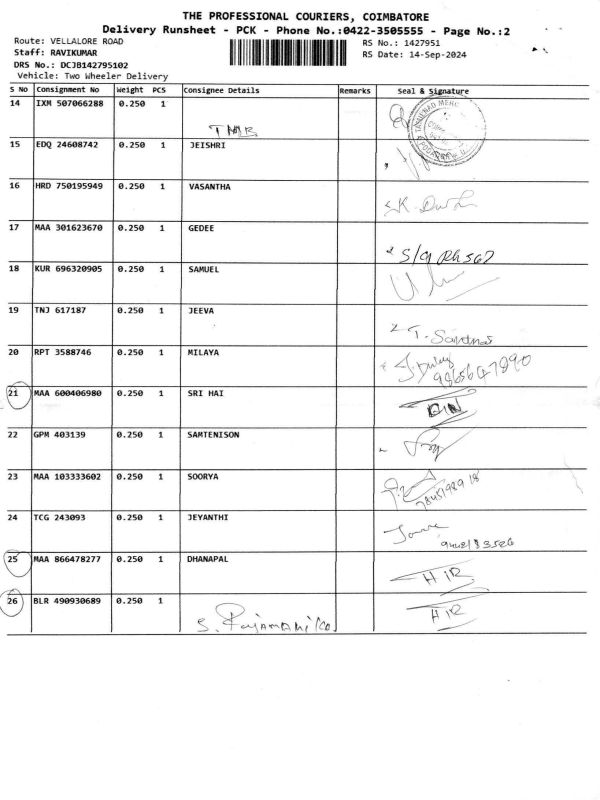 THE PROFESSIONAL COURIERS, COIMBATORE
Delivery Runsheet - PCK - Phone No.:0422-3505555 - Page No.:2
Route: VELLALORE ROAD
RS No.: 1427951
Staff: RAVIKUMAR
RS Date: 14-Sep-2024
DRS No.: DCJB142795102
Vehicle: Two Wheeler Delivery
S No Consignment No Weight PCS Consignee Details Remarks Seal & Signature
14 IXM 507066288 0.250 1
15 EDQ 24608742 0.250 1 JEISHRI
16 HRD 750195949 0.250 1 VASANTHA
17 MAA 301623670 0.250 1 GEDEE
18 KUR 696320905 0.250 1 SAMUEL
19 TNJ 617187 0.250 1 JEEVA
20 RPT 3588746 0.250 1 MILAYA
21 MAA 600406980 0.250 1 SRI HAI
22 GPM 403139 0.250 1 SAMTENISON
23 MAA 103333602 0.250 1 SOORYA
24 TCG 243093 0.250 1 JEYANTHI
25 MAA 866478277 0.250 1 DHANAPAL
HIR
26 BLR 490930689 0.250 1
HIR